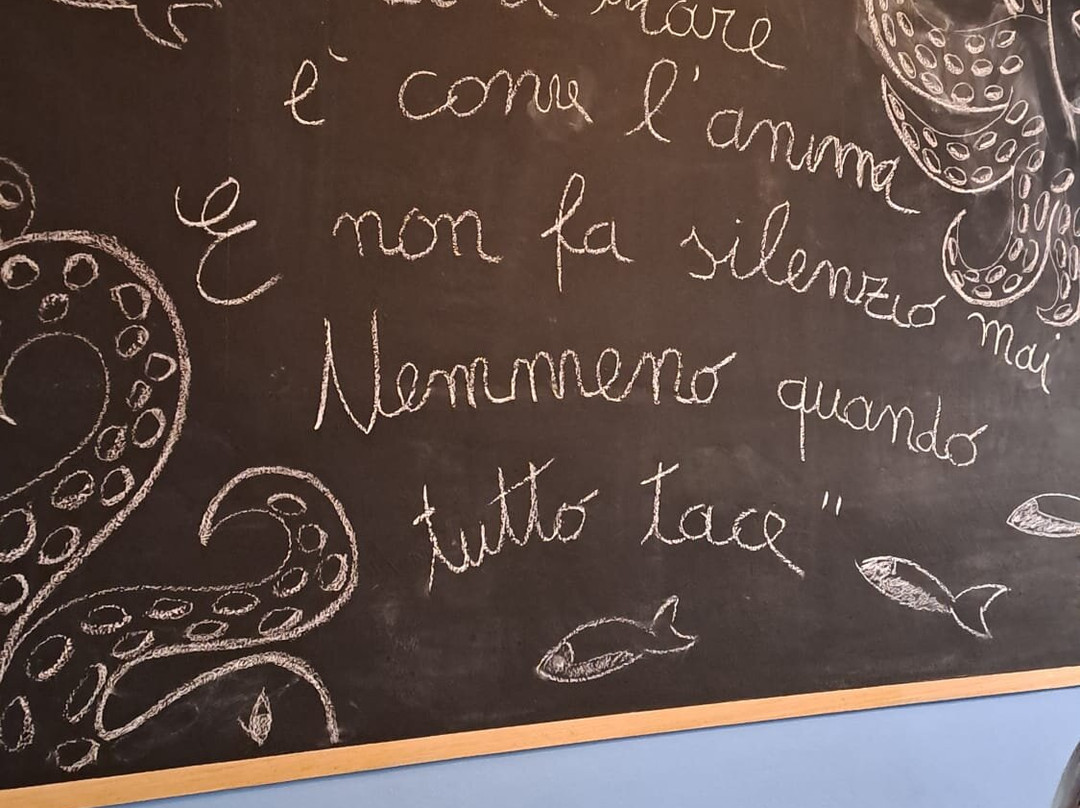 mare
è come l'anima
E non fa silenzio mai
Nemmeno quando
tutto tace"